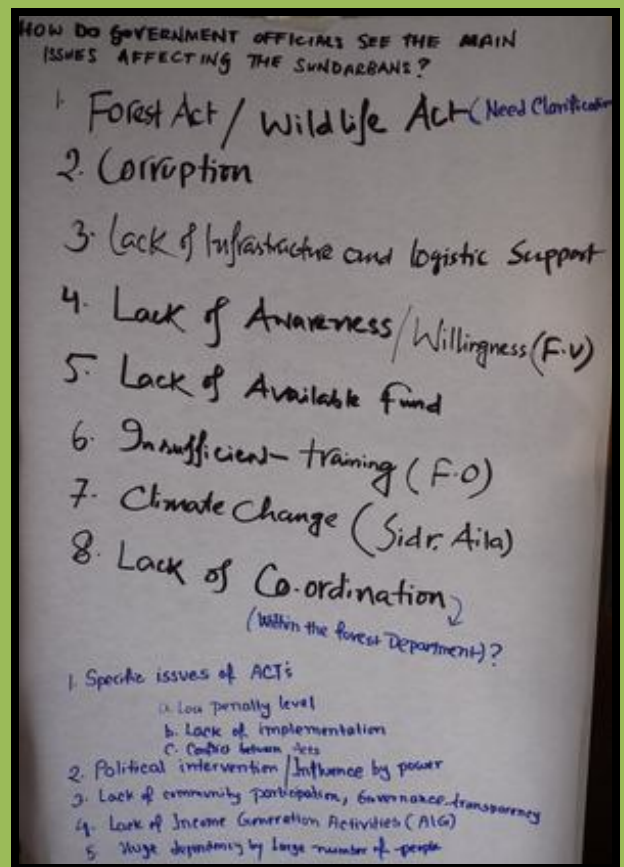 HOW DO GOVERNMENT OFFICIALS SEE THE MAIN
ISSUES AFFECTING THE SUNDARBANS?
1. Forest Act / Wildlife Act (Need Clarification
2. Corruption
3. Lack of Infrastructure and logistic Support
4. Lack of Awareness / Willingness (F.V)
5. Lack of Available fund
6. Insufficient training (F.O)
7. Climate Change (Sidr. Aila)
8. Lack of Co-ordination
(Within the forest Department)?
1. Specific issues of ACTs
a. Low penalty level
b. Lack of implementation
C. Conflict between Acts
2. Political intervention / Influence by power
3. Lack of community participation, Governance, transparency
4. Lack of Income Generation Activities (AIG)
5. Huge dependency by large number of people